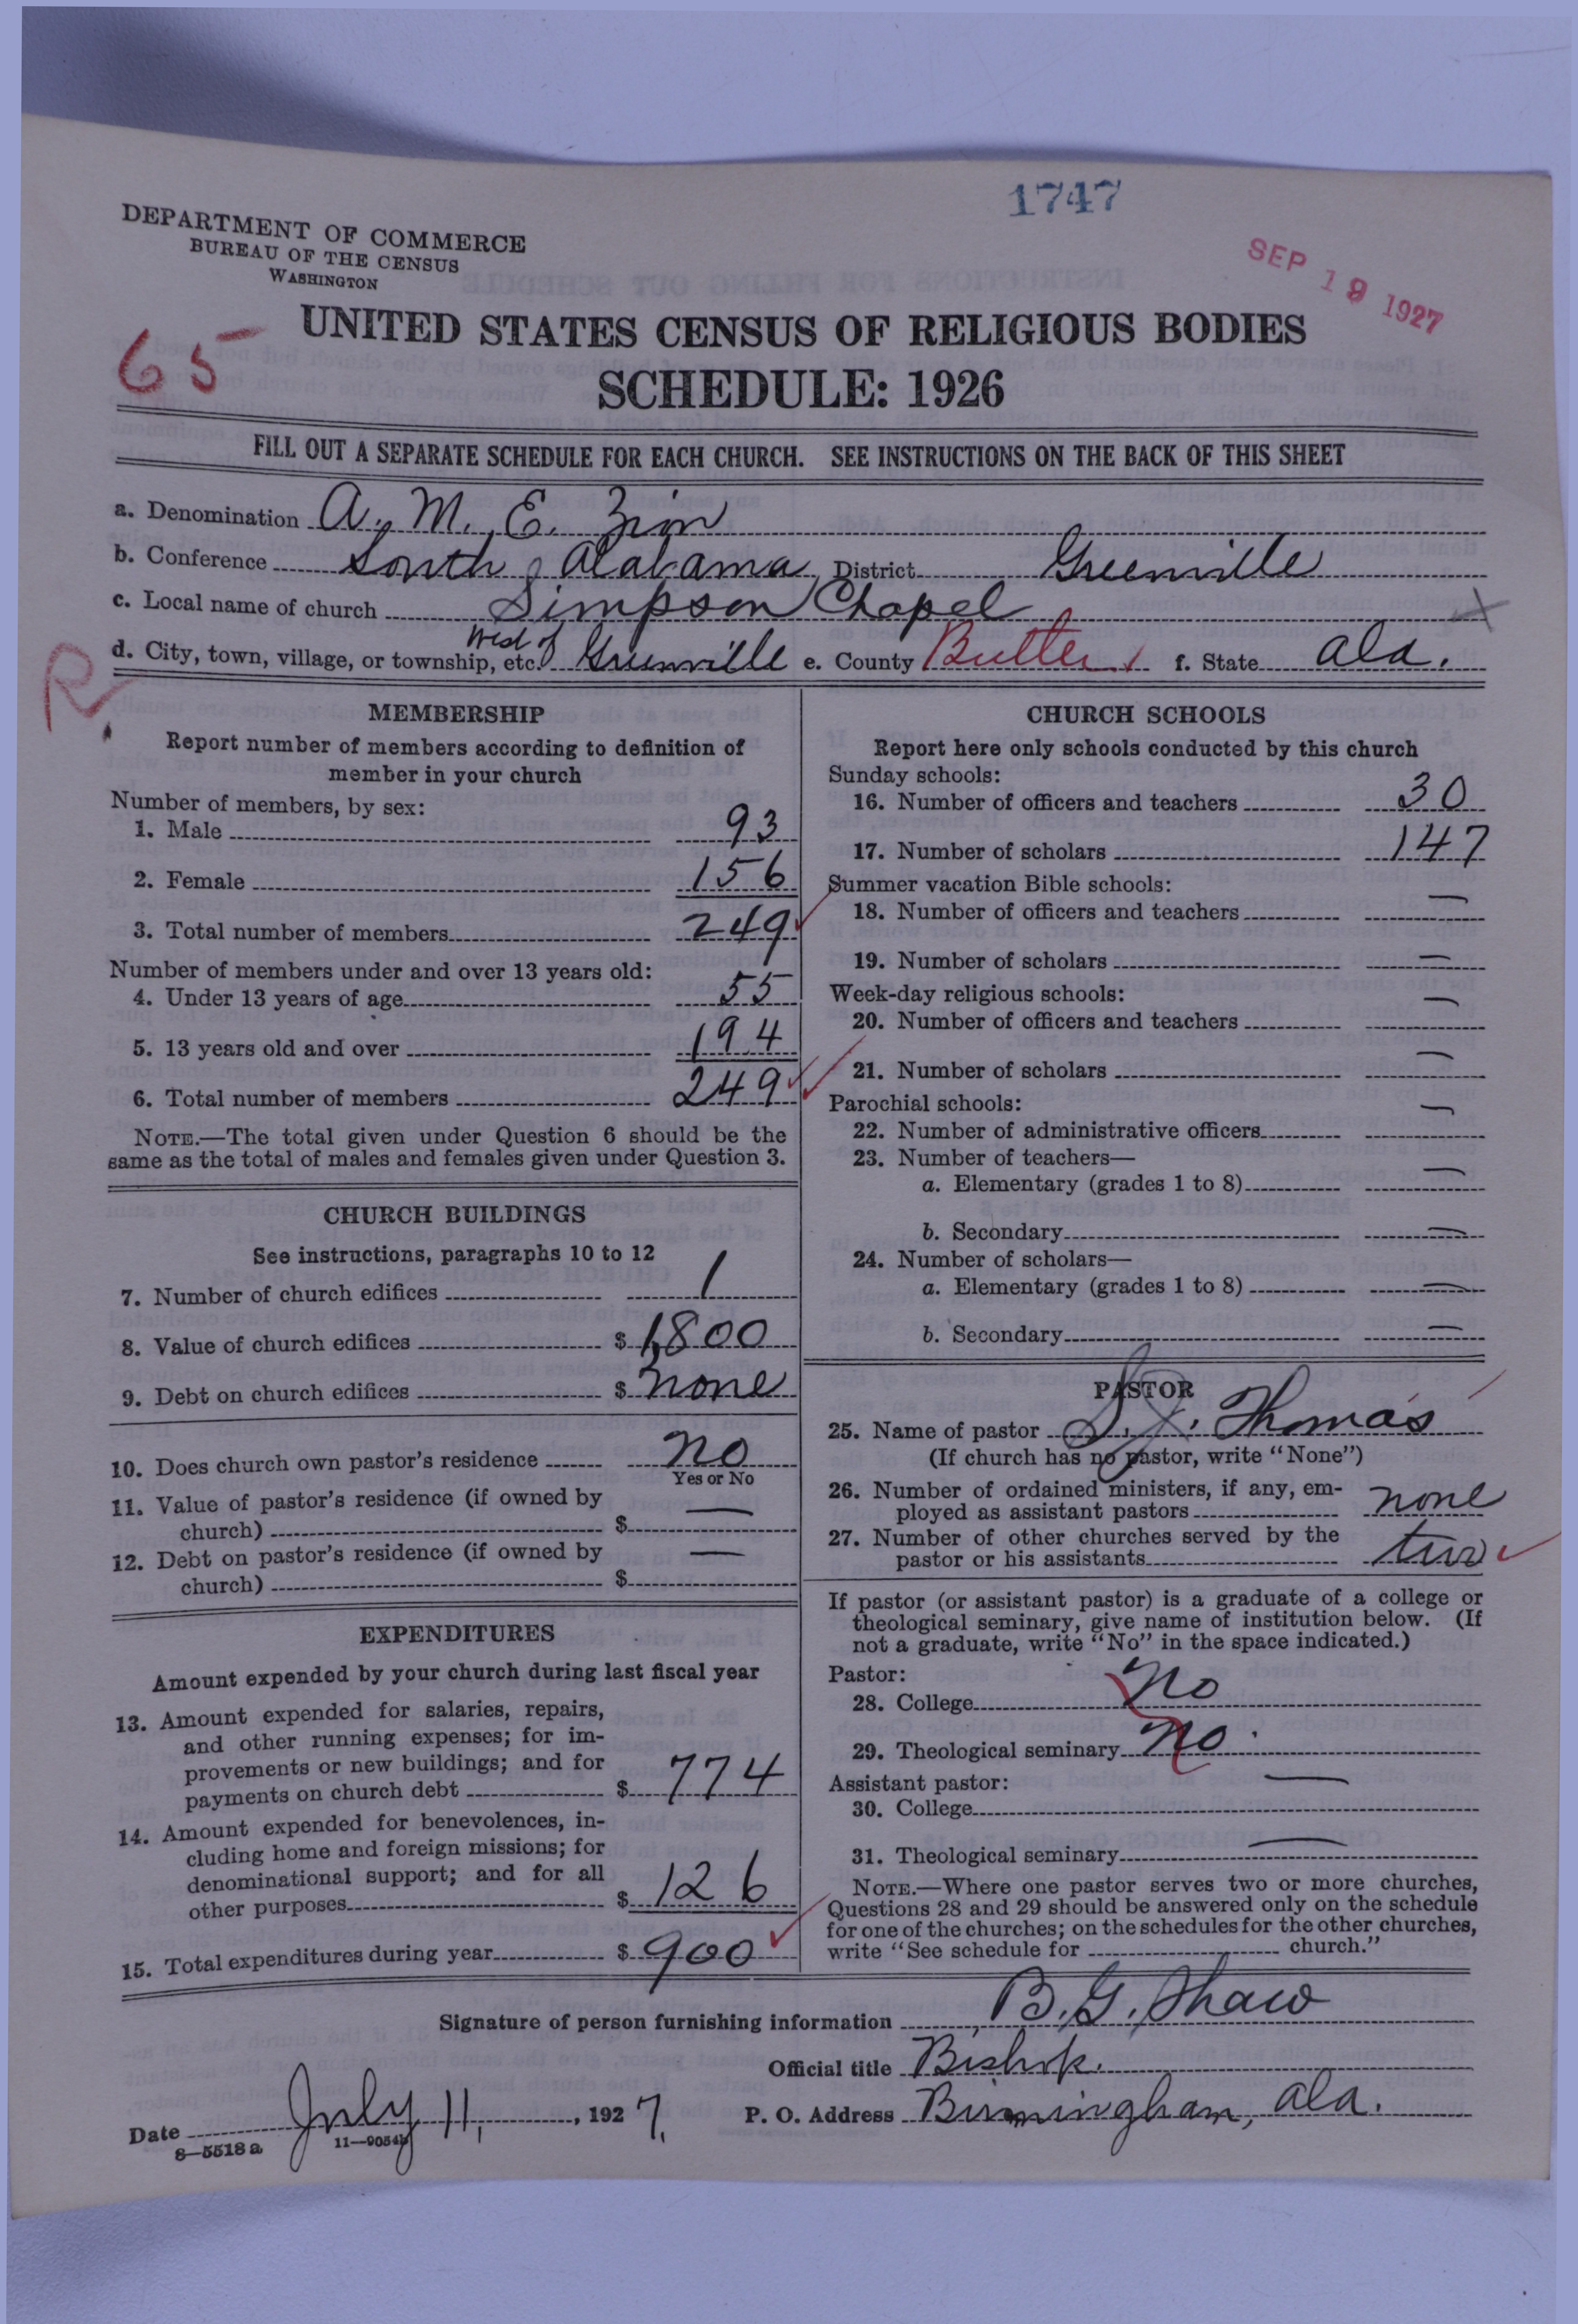 1747
DEPARTMENT OF COMMERCE
BUREAU OF THE CENSUS
WASHINGTON
SEP 19 1927
UNITED STATES CENSUS OF RELIGIOUS BODIES
65
SCHEDULE: 1926
FILL OUT A SEPARATE SCHEDULE FOR EACH CHURCH. SEE INSTRUCTIONS ON THE BACK OF THIS SHEET
a. Denomination A. M. E. Zion
b. Conference South Alabama District Greenville
c. Local name of church Simpson Chapel
d. City, town, village, or township, etc. West of Greenville e. County Butler f. State Ala.
R.
MEMBERSHIP
Report number of members according to definition of
member in your church
Number of members, by sex:
1. Male 93
2. Female 156
3. Total number of members 249
Number of members under and over 13 years old:
4. Under 13 years of age 55
5. 13 years old and over 194
6. Total number of members 249
NOTE.—The total given under Question 6 should be the
same as the total of males and females given under Question 3.
CHURCH BUILDINGS
See instructions, paragraphs 10 to 12
7. Number of church edifices 1
8. Value of church edifices $ 1,800
9. Debt on church edifices $ none
10. Does church own pastor's residence no
Yes or No
11. Value of pastor's residence (if owned by
church) $ —
12. Debt on pastor's residence (if owned by
church) $ —
EXPENDITURES
Amount expended by your church during last fiscal year
13. Amount expended for salaries, repairs,
and other running expenses; for im-
provements or new buildings; and for
payments on church debt $ 774
14. Amount expended for benevolences, in-
cluding home and foreign missions; for
denominational support; and for all
other purposes $ 126
15. Total expenditures during year $ 900
CHURCH SCHOOLS
Report here only schools conducted by this church
Sunday schools:
16. Number of officers and teachers 30
17. Number of scholars 147
Summer vacation Bible schools:
18. Number of officers and teachers —
19. Number of scholars —
Week-day religious schools:
20. Number of officers and teachers —
21. Number of scholars —
Parochial schools:
22. Number of administrative officers —
23. Number of teachers—
a. Elementary (grades 1 to 8) —
b. Secondary —
24. Number of scholars—
a. Elementary (grades 1 to 8) —
b. Secondary —
PASTOR
25. Name of pastor S. J. Thomas
(If church has no pastor, write "None")
26. Number of ordained ministers, if any, em-
ployed as assistant pastors none
27. Number of other churches served by the
pastor or his assistants two
If pastor (or assistant pastor) is a graduate of a college or
theological seminary, give name of institution below. (If
not a graduate, write "No" in the space indicated.)
Pastor:
28. College No
29. Theological seminary No.
Assistant pastor:
30. College —
31. Theological seminary —
NOTE.—Where one pastor serves two or more churches,
Questions 28 and 29 should be answered only on the schedule
for one of the churches; on the schedules for the other churches,
write "See schedule for church."
Signature of person furnishing information B. G. Shaw
Official title Bishop.
Date July 11, 1927. P. O. Address Birmingham, Ala.
8—5518a 11—9054b